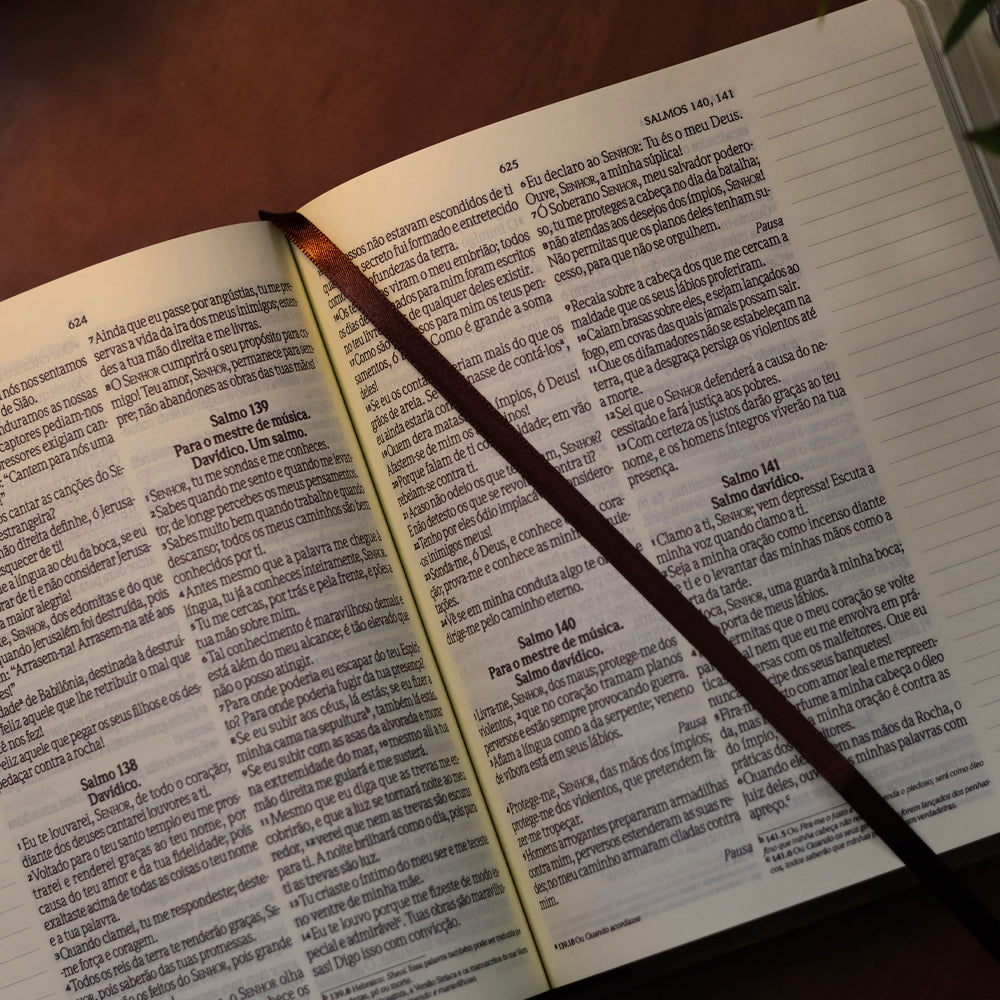 624
nós nos sentamos
de Sião.
as nossas
captores pediam-nos
opressores exigiam can-
"Cantem para nós uma
cantar as canções do Se-
estrangeira?
não direita definhe, ó Jerusa-
esquecer de ti!
a língua ao céu da boca, se eu
de ti e não considerar Jerusa-
maior alegria!
SENHOR, dos edomitas e do que
quando Jerusalém foi destruída, pois
"Arrasem-na! Arrasem-na até aos
de Babilônia, destinada à destrui-
feliz aquele que lhe retribuir o mal que
nos fez!
Feliz aquele que pegar os seus filhos e os des-
contra a rocha!
Salmo 138
Davídico.
1 Eu te louvarei, SENHOR, de todo o coração,
diante dos deuses cantarei louvores a ti.
2 Voltado para o teu santo templo eu me pros-
trarei e renderei graças ao teu nome, por
causa do teu amor e da tua fidelidade; pois
exaltaste acima de todas as coisas o teu nome
e a tua palavra.
3 Quando clamei, tu me respondeste; deste-
-me força e coragem.
4 Todos os reis da terra te renderão graças, SE-
NHOR, pois saberão das tuas promessas.
os feitos do SENHOR, pois grande
o SENHOR olha
7 Ainda que eu passe por angústias, tu me pre-
servas a vida da ira dos meus inimigos; esten-
des a tua mão direita e me livras.
8 O SENHOR cumprirá o seu propósito para co-
migo! Teu amor, SENHOR, permanece para sem-
pre; não abandones as obras das tuas mãos!
Salmo 139
Para o mestre de música.
Davídico. Um salmo.
1 SENHOR, tu me sondas e me conheces.
2 Sabes quando me sento e quando me levan-
to; de longe percebes os meus pensamentos.
3 Sabes muito bem quando trabalho e quando
descanso; todos os meus caminhos são bem
conhecidos por ti.
4 Antes mesmo que a palavra me chegue à
língua, tu já a conheces inteiramente, SENHOR.
5 Tu me cercas, por trás e pela frente, e pões a
tua mão sobre mim.
6 Tal conhecimento é maravilhoso demais e
está além do meu alcance; é tão elevado que
não o posso atingir.
7 Para onde poderia eu escapar do teu Espíri-
to? Para onde poderia fugir da tua presença?
8 Se eu subir aos céus, lá estás; se eu fizer a
minha cama na sepultura, também lá estás.
9 Se eu subir com as asas da alvorada e morar
na extremidade do mar, 10 mesmo ali a tua
mão direita me guiará e me susterá.
11 Mesmo que eu diga que as trevas me en-
cobrirão, e que a luz se tornará noite ao meu
redor, 12 verei que nem as trevas são escuras
para ti. A noite brilhará como o dia, pois para
ti as trevas são luz.
13 Tu criaste o íntimo do meu ser e me teceste
no ventre de minha mãe.
14 Eu te louvo porque me fizeste de modo es-
pecial e admirável. Tuas obras são maravilho-
sas! Digo isso com convicção.
139.8 Hebraico: Sheol. Essa palavra também pode ser traduzida por
625
SALMOS 140, 141
ossos não estavam escondidos de ti
secreto fui formado e entretecido
profundezas da terra.
viram o meu embrião; todos
para mim foram escritos
de qualquer deles existir.
para mim os teus pen-
samentos, ó Como é grande a soma
deles!
18 Se eu os contasse mais do que os
grãos de areia. Se passe de contá-los,
eu ainda estaria
19 Quem dera matasses ímpios, ó Deus!
Afastem-se de mim os
20 Porque falam de ti maldade; em vão
rebelam-se contra ti.
21 Acaso não odeio os que te SENHOR?
E não detesto os que se revoltam contra ti?
22 Tenho por eles ódio implacável!
os inimigos meus!
23 Sonda-me, ó Deus, e conhece
ção; prova-me e conhece as minhas
tações.
24 Vê se em minha conduta algo te
dirige-me pelo caminho eterno.
Salmo 140
Para o mestre de música.
Salmo davídico.
1 Livra-me, SENHOR, dos maus; protege-me dos
violentos, 2 que no coração tramam planos
perversos e estão sempre provocando guerra.
3 Afiam a língua como a da serpente; veneno
de víbora está em seus lábios.
Pausa
4 Protege-me, SENHOR, das mãos dos ímpios;
protege-me dos violentos, que pretendem fa-
zer-me tropeçar.
5 Homens arrogantes prepararam armadilhas
contra mim, perversos estenderam as suas re-
des; no meu caminho armaram ciladas contra
mim.
Pausa
139.18 Ou Quando acordasse
6 Eu declaro ao SENHOR: Tu és o meu Deus.
Ouve, SENHOR, a minha súplica!
7 Ó Soberano SENHOR, meu salvador podero-
so, tu me proteges a cabeça no dia da batalha;
8 não atendas aos desejos dos ímpios, SENHOR!
Não permitas que os planos deles tenham su-
cesso, para que não se orgulhem.
Pausa
9 Recaia sobre a cabeça dos que me cercam a
maldade que os seus lábios proferiram.
10 Caiam brasas sobre eles, e sejam lançados ao
fogo, em covas das quais jamais possam sair.
11 Que os difamadores não se estabeleçam na
terra, que a desgraça persiga os violentos até
a morte.
12 Sei que o SENHOR defenderá a causa do ne-
cessitado e fará justiça aos pobres.
13 Com certeza os justos darão graças ao teu
nome, e os homens íntegros viverão na tua
presença.
Salmo 141
Salmo davídico.
1 Clamo a ti, SENHOR; vem depressa! Escuta a
minha voz quando clamo a ti.
2 Seja a minha oração como incenso diante
de ti e o levantar das minhas mãos como a
da tarde.
SENHOR, uma guarda à minha boca;
porta de meus lábios.
permitas que o meu coração se volte
mal nem que eu me envolva em prá-
ticas perversas com os malfeitores. Que eu
participe dos seus banquetes!
5 Fira-me com amor leal e me repreen-
perfume a minha cabeça o óleo
do ímpio minha oração é contra as
práticas dos malfeitores.
6 Quando eles nas mãos da Rocha, o
juiz deles, ouvirão as minhas palavras com
apreço.
141.5 Ou Fira-me o justo o piedoso; será como óleo
minha cabeça não
141.6 Ou Quando os seus forem lançados dos penhas-
cos, todos saberão que minhas verdadeiras.